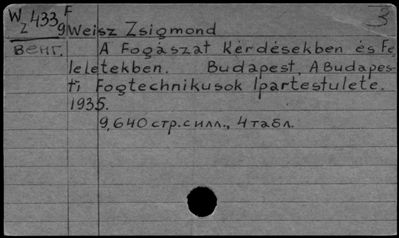 W 433 F
z 9 Weisz Zsigmond
Венг. A Fogászat Kérdésekben és Fe
leletekben. Budapest, A Budapes-
ti Fogtechnikusok Ipartestulete.
1935.
9, 640 стр. с илл., 4 табл.